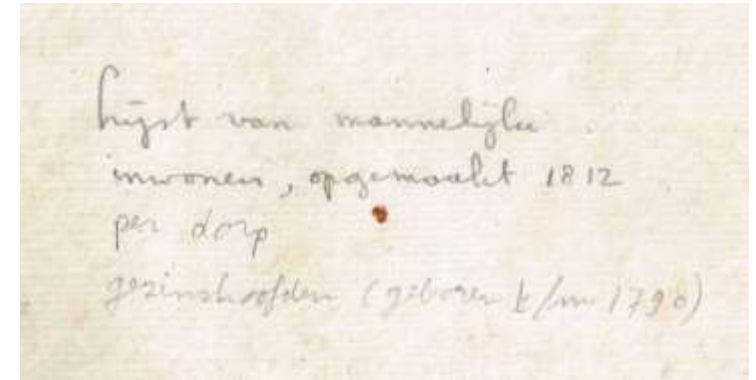 Lijst van mannelijke
inwoners, opgemaakt 1812
per dorp
gezinshoofden (geboren t/m 1790)